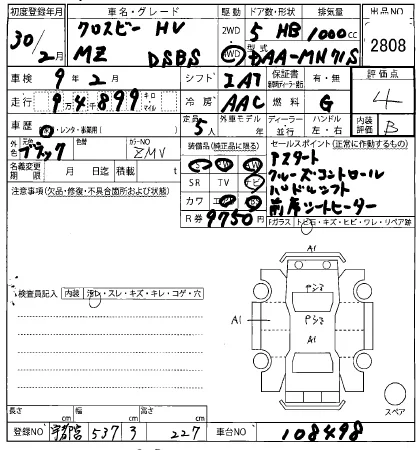 初度登録年月 車名・グレード 駆動 ドア数・形状 排気量 出品NO
30/2月 クロスビー HV MZ DSBS 2WD 4WD 5 HB 1000cc 2808
型式 DAA-MN71S
車検 9年2月 シフト IAT 保証書 有・無 評価点 4
走行 9万4,899 キロ・マイル 冷房 AAC 燃料 G
車歴 ・レンタ・事業用( ) 定員 5人 外車モデル 年 ディーラー・並行 ハンドル 左・右 内装評価 B
外色 元色 ブラック 色替 カラーNO ZMV 装備品(純正品に限る) セールスポイント(正常に作動するもの)
名義変更期限 月 日迄 積載 t SR TV ナビ アスタート
注意事項(欠品・修復・不具合箇所および状態) カワ クルーズコントロール
R券 9750円 ハドルシフト
前席シートヒーター
Fガラス トビ石・キズ・ヒビ・ワレ・リペア跡
A1
検査員記入 内装 汚レ・スレ・キズ・キレ・コゲ・穴
ヤシマ
A1 ヤシマ
A1
スペア
長さ cm 幅 cm 高さ cm
登録NO 宇都宮 537 3 227 車台NO 108498